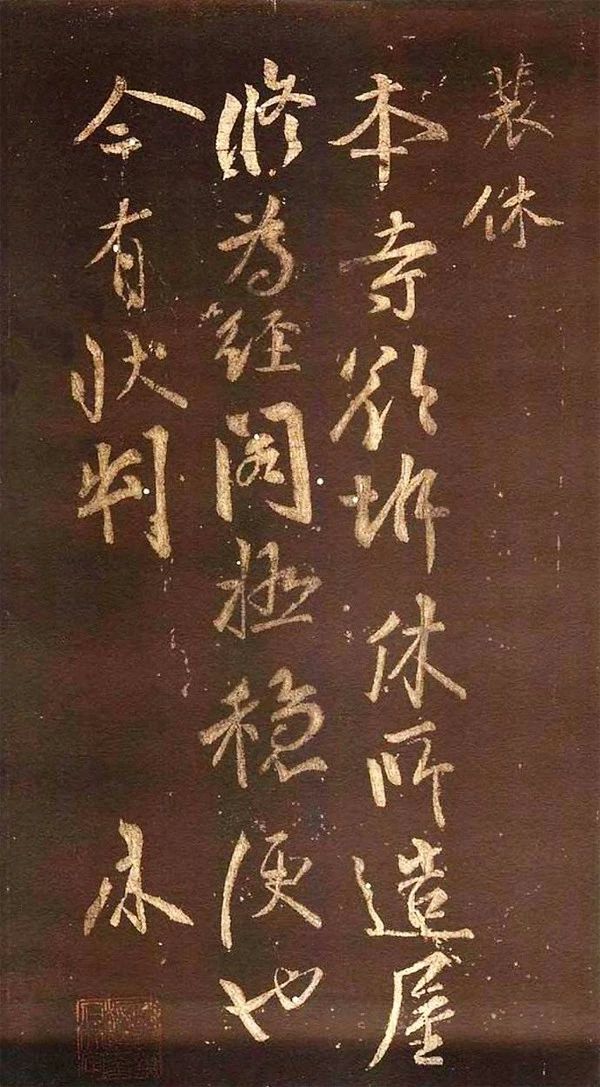 裴休
本寺欲拆休所造屋
修為經閣極穩便也
今有狀判 休